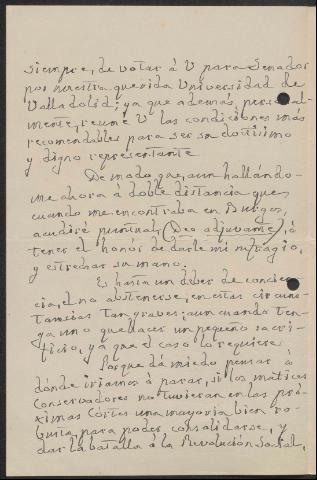 siempre, de votar á V para Senador
por nuestra querida Universidad de
Valladolid; ya que además, personal-
mente, reune V las condiciones más
recomendables para ser sa doctisimo
y digno representante
De modo que, aun hallándo-
me ahora á doble distancia que
cuando me encontraba en Burgos,
acudiré puntual, (Deo adjuvame), á
tener el honor de darle mi sufragio,
y estrechar su mano.
Es hasta un deber de concien-
cia, el no abstenerse, en estas circuns-
tancias tan graves; aun cuando ten-
ga uno que hacer un pequeño sacri-
ficio, ya que el caso lo requiere
Porque dá miedo pensar á
dónde iriamos á parar, si los matices
Conservadores no tuvieran en las pró-
ximas Córtes una mayoria bien ro-
busta para poder consolidarse, y
dar la batalla á la Revolución Social,